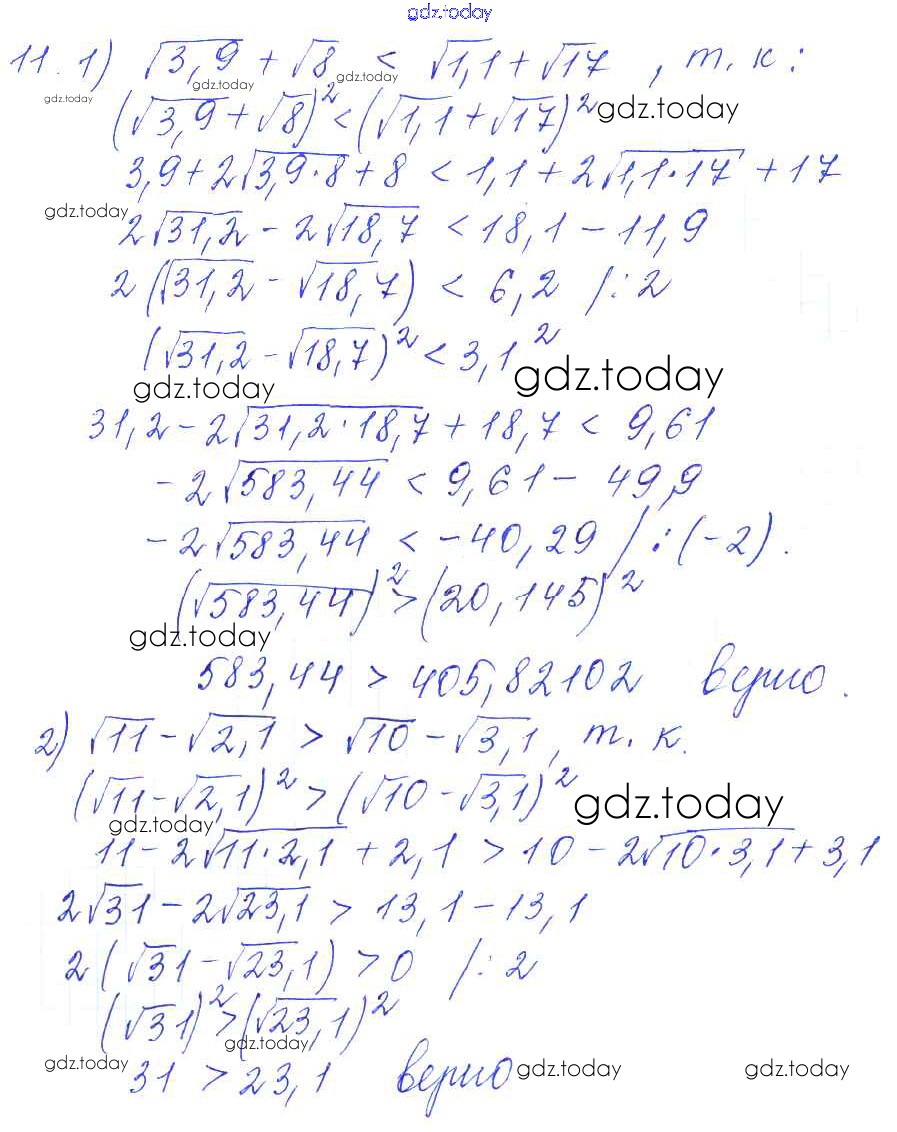 gdz.today
11. 1) √3,9 + √8 < √1,1 + √17 , т. к :
gdz.today gdz.today
gdz.today
(√3,9 + √8)² < (√1,1 + √17)² gdz.today
3,9 + 2√3,9·8 + 8 < 1,1 + 2√1,1·17 + 17
gdz.today
2√31,2 - 2√18,7 < 18,1 - 11,9
2 (√31,2 - √18,7) < 6,2 /: 2
(√31,2 - √18,7)² < 3,1²
gdz.today gdz.today
31,2 - 2√31,2·18,7 + 18,7 < 9,61
-2√583,44 < 9,61 - 49,9
-2√583,44 < -40,29 / : (-2).
(√583,44)² > (20,145)²
gdz.today
583,44 > 405,82102 верно.
2) √11 - √2,1 > √10 - √3,1, т. к.
(√11 - √2,1)² > (√10 - √3,1)² gdz.today
gdz.today
11 - 2√11·2,1 + 2,1 > 10 - 2√10·3,1 + 3,1
2√31 - 2√23,1 > 13,1 - 13,1
2 (√31 - √23,1) > 0 /: 2
(√31)² > (√23,1)²
gdz.today
gdz.today 31 > 23,1 верно gdz.today gdz.today